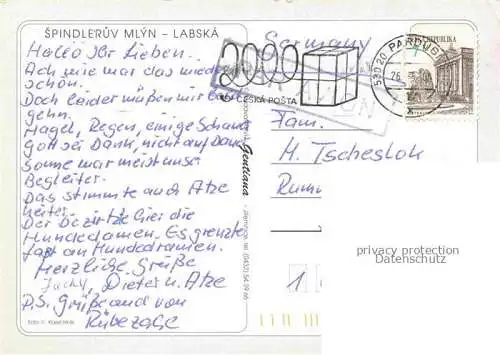 ŠPINDLERŮV MLÝN – LABSKÁ
Hallo Ihr Lieben.
Ach wie war das wieder
schön.
Doch leider müßen wir
gehn.
Hagel, Regen, einige Schauer
Gott sei Dank, nicht auf Dauer
Sonne war meist unser
Begleiter.
Das stimmte auch Atze
heiter.
Der bezirzte hier die
Hundedamen. Es grenzte
fast an Hundedramen.
Herzliche Grüße
Jacky, Dieter u. Atze
P.S. Grüße auch von
Rübezahl
Gentiana
Germany
PAR AVION
ČESKÁ POSTA
530 20 PARDUB
26
REPUBLIKA
Fam.
H. Tscheslok
Rumm
1
privacy protection
Datenschutz